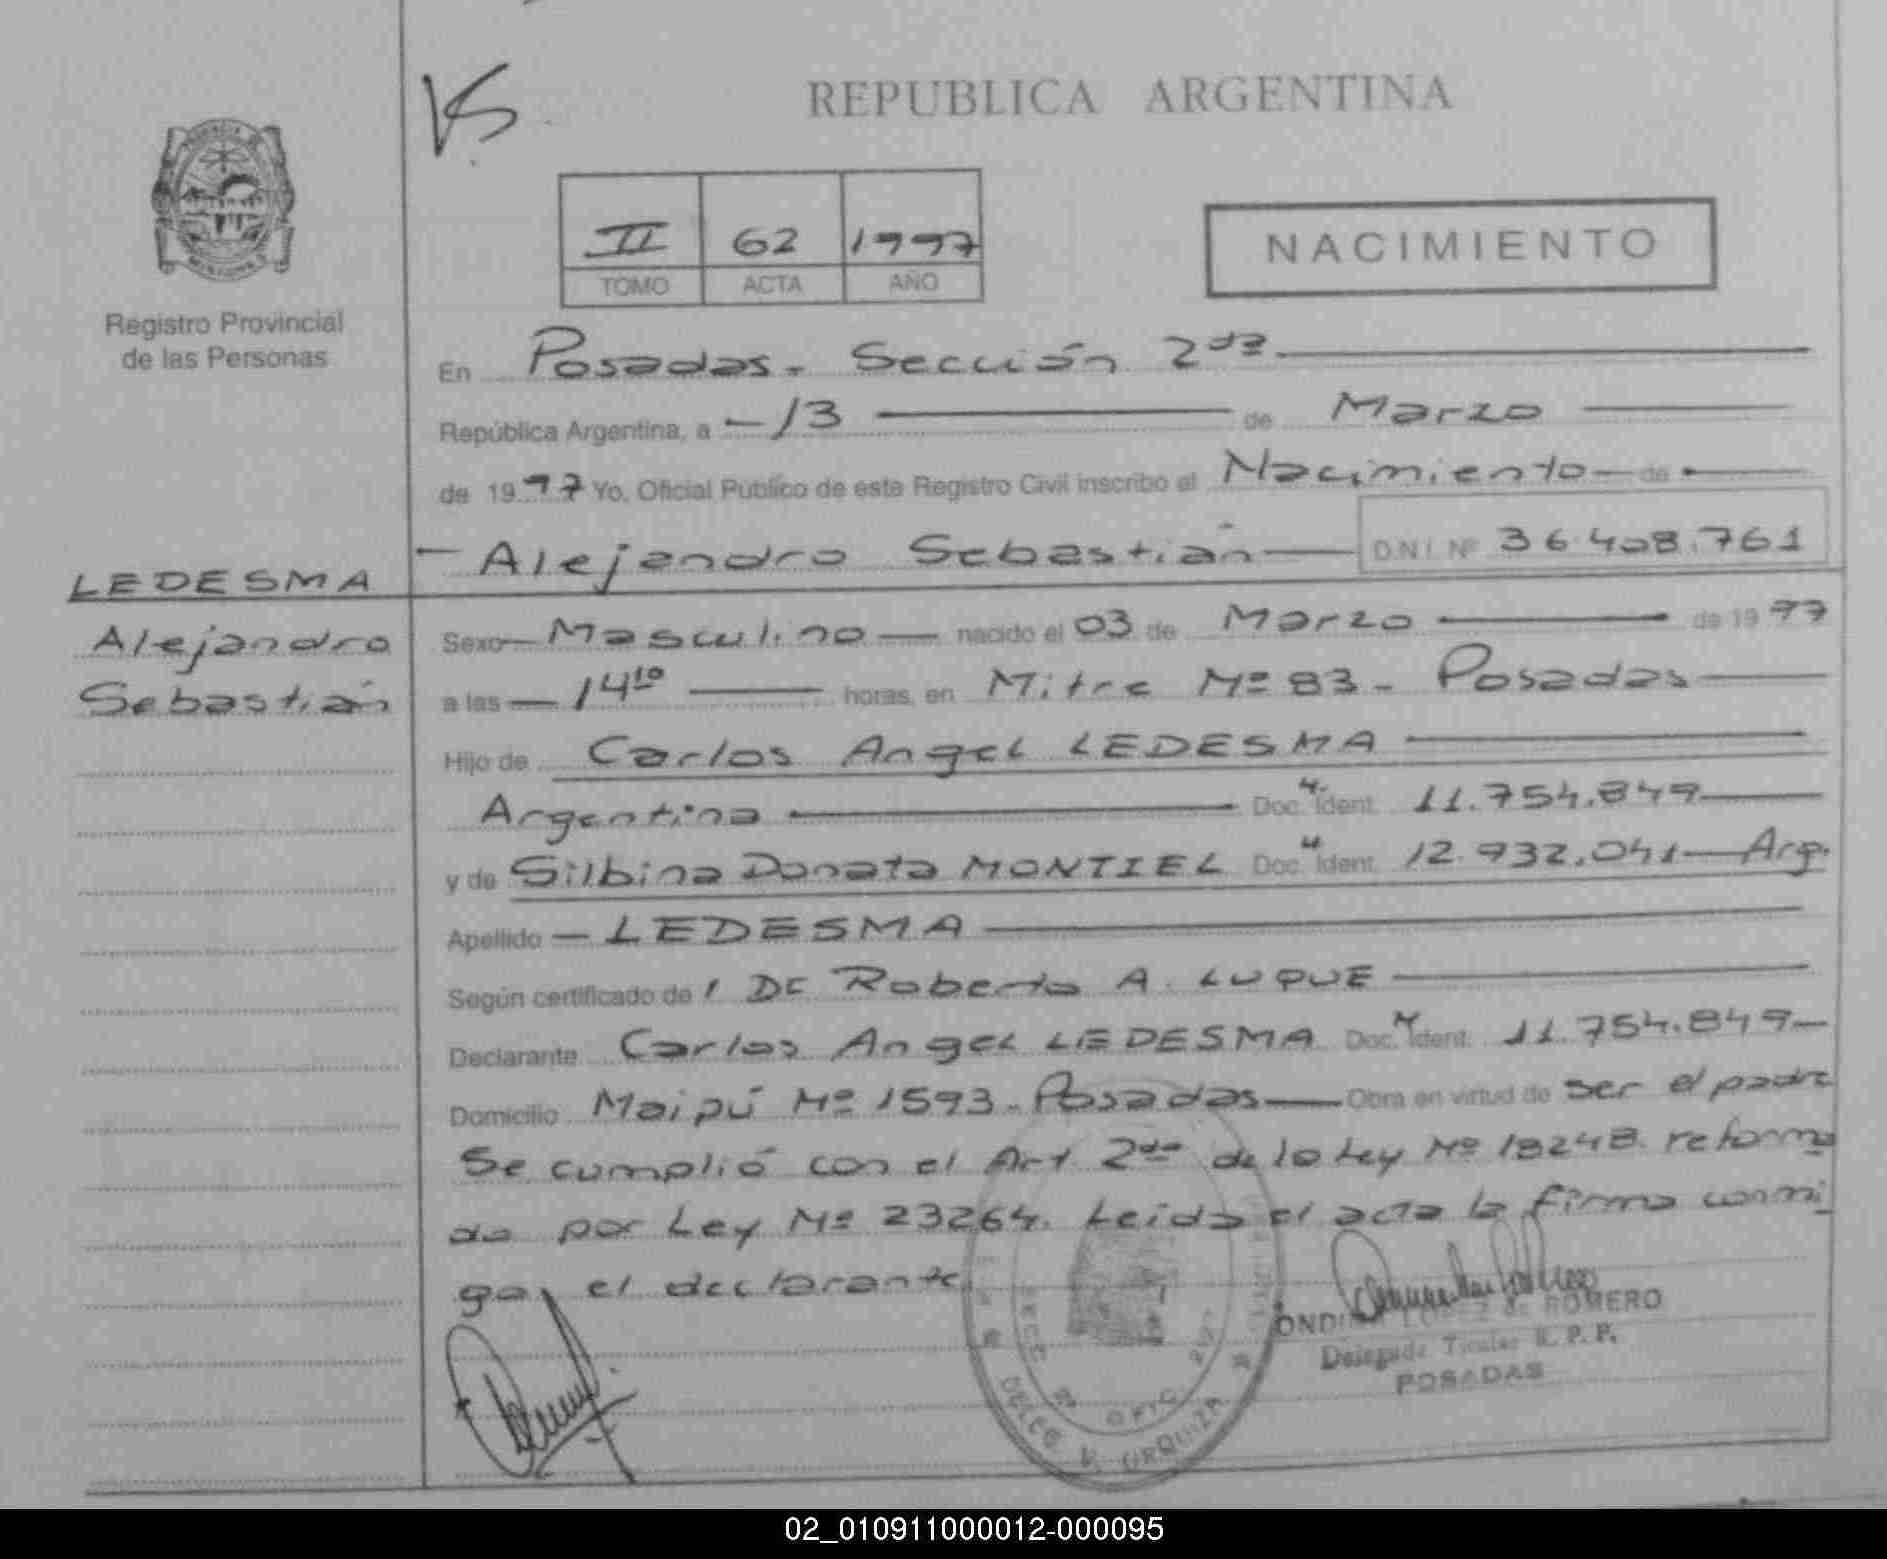 REPUBLICA ARGENTINA
II 62 1997
TOMO ACTA AÑO
NACIMIENTO
Registro Provincial
de las Personas
LEDESMA
Alejandro
Sebastián
En Posadas. Sección 2da
República Argentina, a 13 de Marzo
de 1997 Yo, Oficial Público de este Registro Civil inscribo el Nacimiento de
Alejandro Sebastián D.N.I. Nº 36.408.761
Sexo Masculino nacido el 03 de Marzo de 1997
a las 14 10 horas, en Mitre Nº 83 - Posadas
Hijo de Carlos Angel LEDESMA
Argentina Doc. Ident. 11.754.849
y de Silbina Donata MONTIEL Doc. Ident. 12.932.041 Arg.
Apellido LEDESMA
Según certificado de l Dr Roberto A. LUQUE
Declarante Carlos Angel LEDESMA Doc. Ident. 11.754.849
Domicilio Maipú Nº 1593 - Posadas Obra en virtud de ser el padre
Se cumplió con el Art 2do de la Ley Nº 18248 reforma
da por Ley Nº 23264. Leida el acta la firma conmi
go, el declarante
LOPEZ de ROMERO
Delegada Titular R. P. P.
POSADAS
DELEG. URQUIZA
02_010911000012-000095